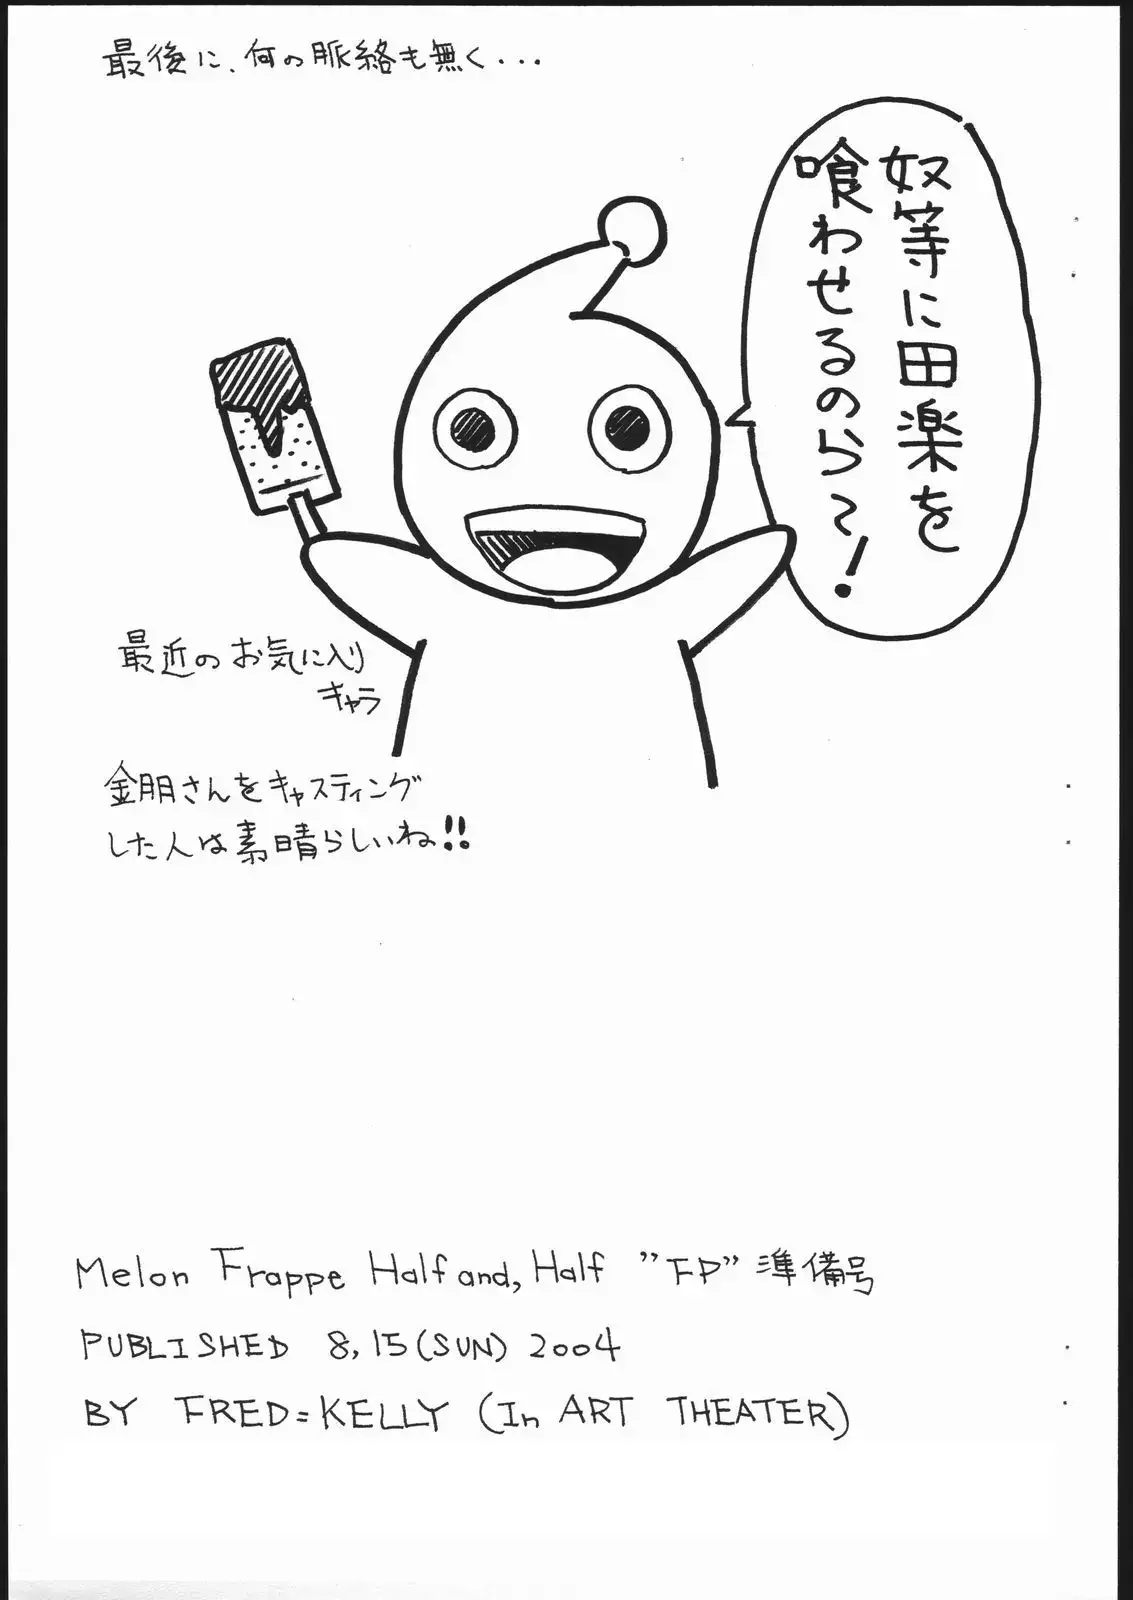 最後に、何の脈絡も無く...
奴等に田楽を
喰わせるのら〜!
最近のお気に入り
キャラ
金朋さんをキャスティング
した人は素晴らしいね!!
Melon Frappe Half and, Half "FP" 準備号
PUBLISHED 8,15(SUN) 2004
BY FRED=KELLY (In ART THEATER)